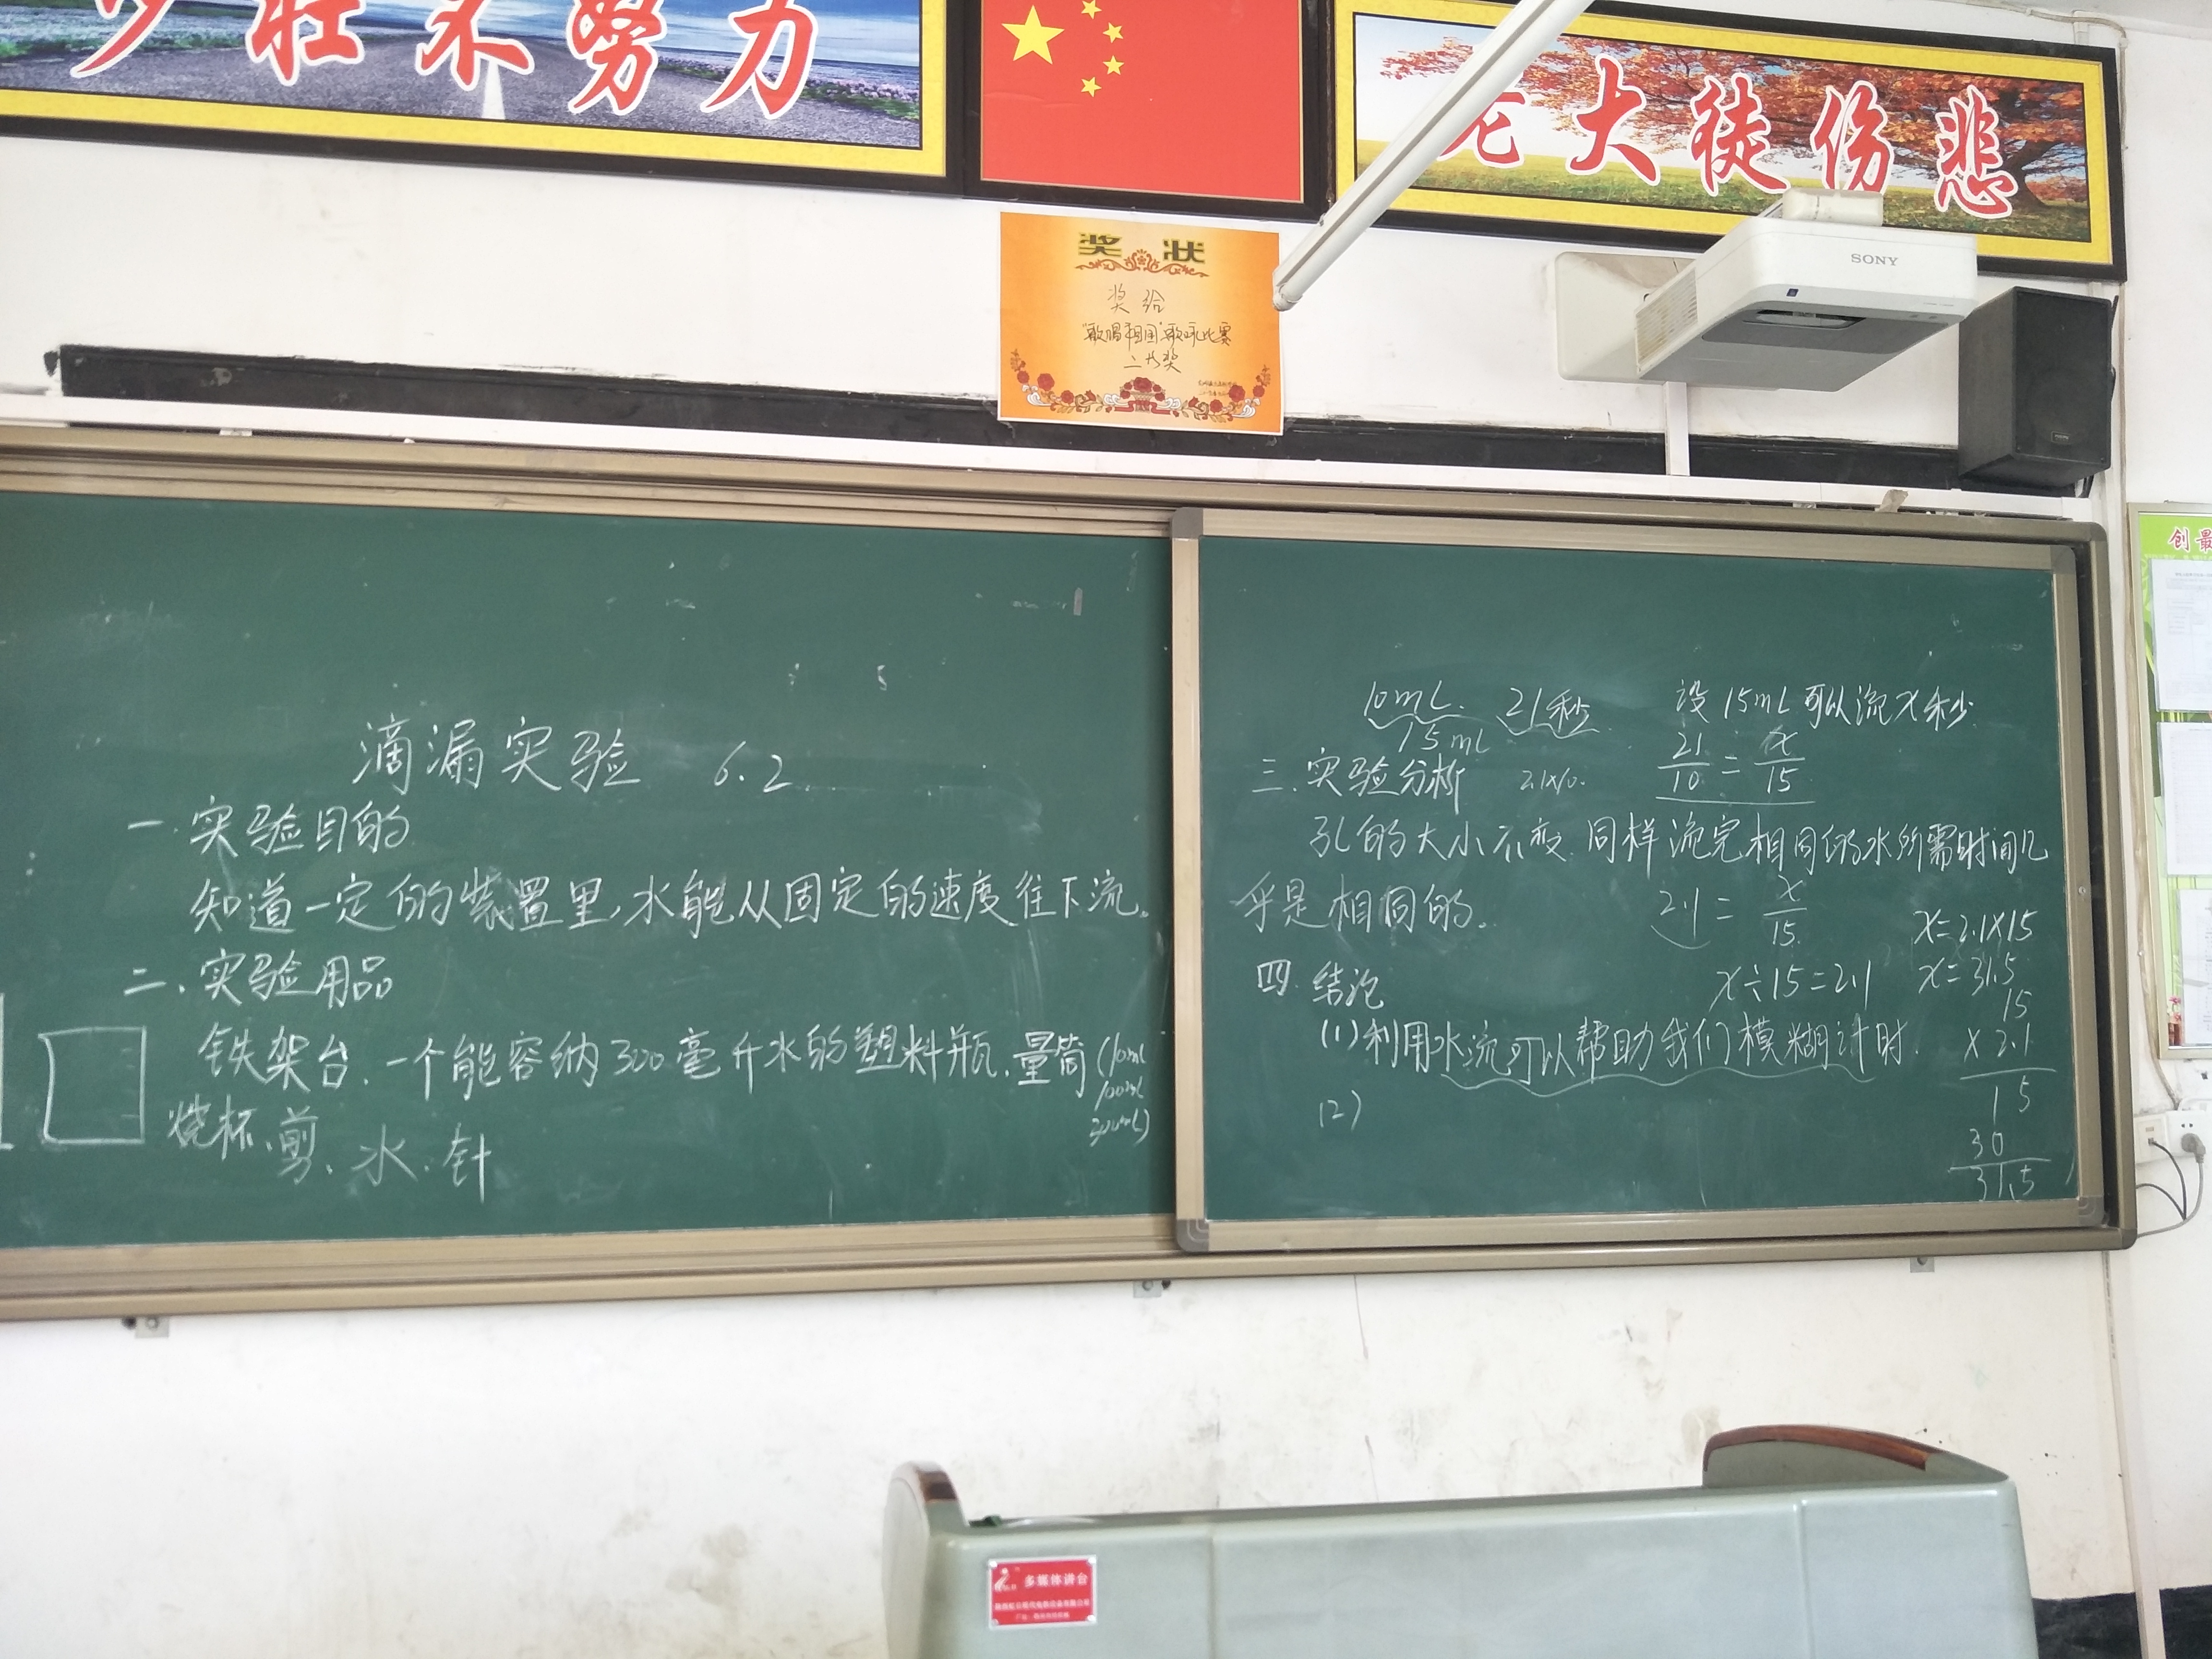 少壮不努力
老大徒伤悲
SONY
奖状
奖给
"歌唱祖国"歌咏比赛
二等奖
创最
滴漏实验 6.2
一.实验目的
知道一定的装置里,水能从固定的速度往下流。
二、实验用品
铁架台.一个能容纳300毫升水的塑料瓶.量筒(10ml
100ml
300ml)
烧杯、剪、水.针
10mL. 21秒 设15mL可以流x秒.
15mL
21/10 = x/15
三.实验分析
孔的大小不变.同样流完相同的水所需时间几
乎是相同的。
2.1 = x/15
x=2.1×15
x÷15=2.1 x=31.5
四.结论
(1)利用水流可以帮助我们模糊计时.
(2)
15
×2.1
15
30
31.5
多媒体讲台